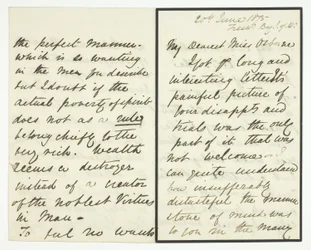 My Dearest Miss
I got yr long and
interesting letter its
painful picture of
your disappts and
trials was the only
part of it that was
not welcome
can quite understand
how insufferably
distasteful the manner
& tone of mind was
to you in the many
the perfect manner
which is so wanting
in the men you describe
but I doubt if the
actual poverty of spirit
does not as a rule
belong chiefly to the
very rich. Wealth
seems a destroyer
instead of a creator
of the noblest Virtues
in Man—
To feel no wants